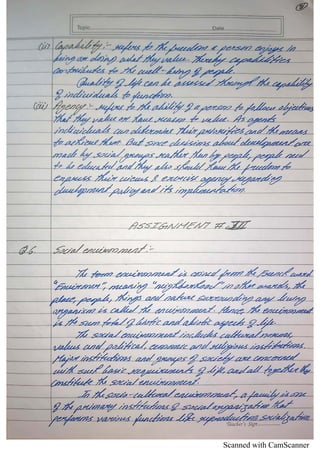 Topic Date
(ii) Capability :- refers to the freedom a person enjoys in
being or doing what they value. Thereby capabilities
contributes to the well-being of people.
Quality of life can be assessed through the capability
of individuals to function.
(iii) Agency :- refers to the ability of a person to follow objectives
that they value or have reason to value. As agents
individuals can determine their priorities and the means
to achieve them. But since decisions about development are
made by social groups rather than by people, people need
to be educated and they also should have the freedom to
express their views & exercise agency regarding
development policy and its implementation.
ASSIGNMENT # III
Q6. Social environment :-
The term environment is coined from the French word
meaning "neighbourhood" in other words, the
place, people, things and nature surrounding any living
organism is called the environment. Hence, the environment
is the sum total of biotic and abiotic aspects of life.
The social environment includes cultural norms,
values and political, economic and religious institutions.
Major institutions and groups of society are concerned
with such basic requirements of life and all together they
constitute the social environment.
In the socio-cultural environment, a family is one
of the primary institutions of social organization that
performs various functions like reproduction, socialization
Teacher's Sign
Scanned with CamScanner